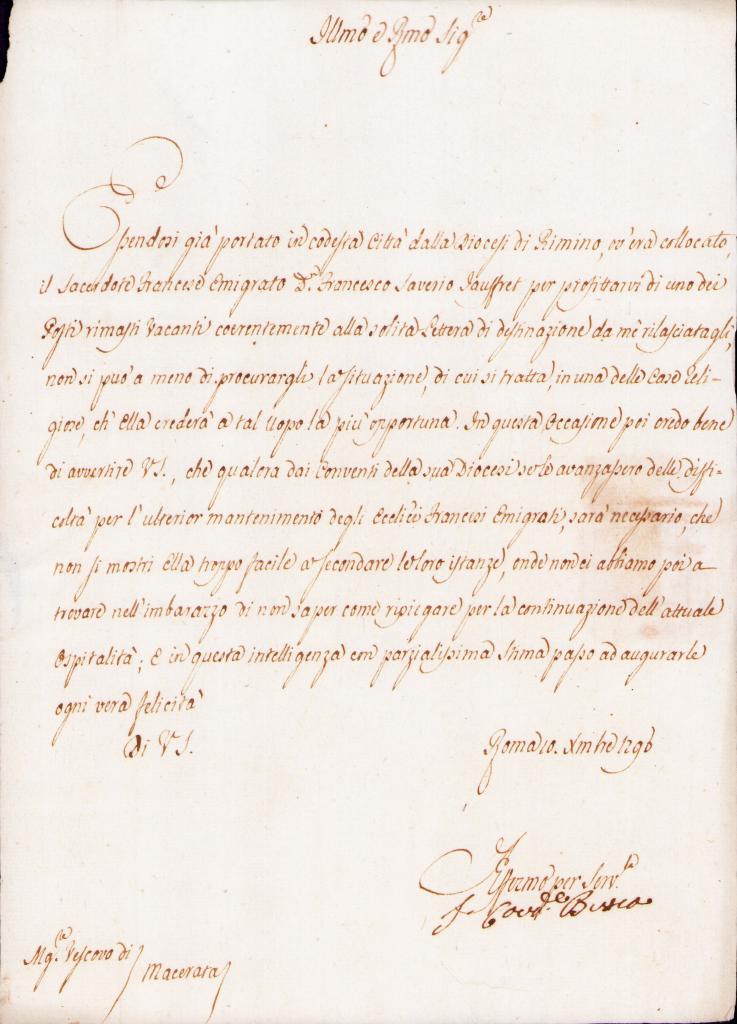 Illmo e Rmo Sigre
Essendosi già portato in codesta Città dalla Diocesi di Rimino, ov'era collocato,
il Sacerdote Francese Emigrato Dn Francesco Saverio Jauffret per profittarvi di uno dei
Posti rimasti vacanti coerentemente alla solita Lettera di destinazione da me rilasciatagli,
non si può a meno di procurargli la situazione, di cui si tratta, in una delle Case Reli-
giose, ch'Ella crederà a tal uopo la più opportuna. In questa occasione poi credo bene
di avvertire VS., che qualora dai Conventi della sua Diocesi se le avanzassero delle diffi-
coltà per l'ulterior mantenimento degli Ecclici Francesi Emigrati, sarà necessario, che
non si mostri Ella troppo facile a secondare le loro istanze, onde non ci abbiamo poi a
trovare nell'imbarazzo di non saper come ripiegare per la continuazione dell'attuale
Ospitalità; E in questa intelligenza con parzialissima stima passo ad augurarle
ogni vera felicità
Di VS.
Roma 10. Xmbre 1796
Affermo per Servla
Mgre Vescovo di
Macerata